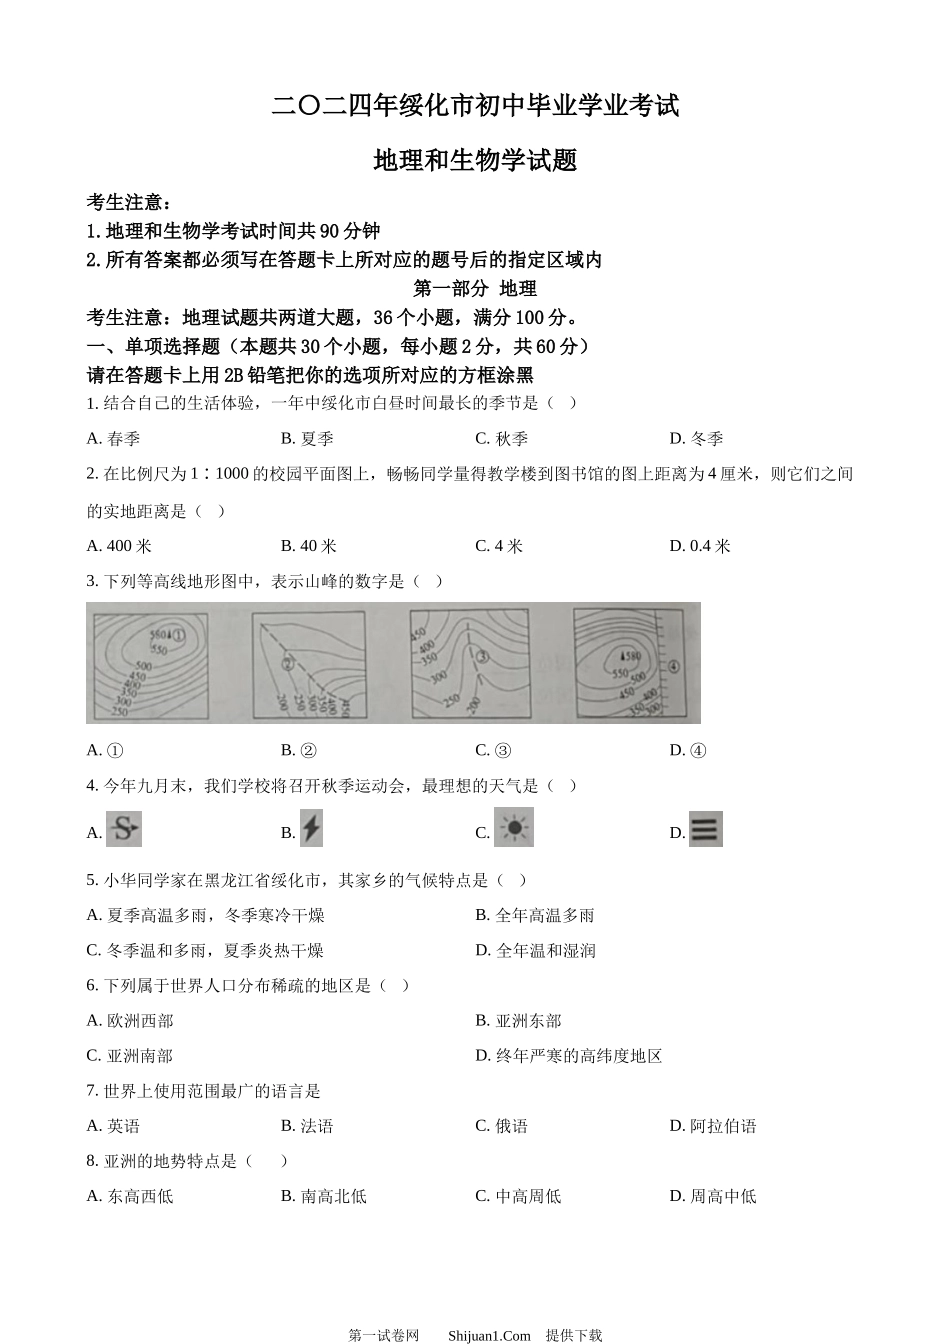 二〇二四年绥化市初中毕业学业考试
地理和生物学试题
考生注意：
1.地理和生物学考试时间共 90 分钟
2.所有答案都必须写在答题卡上所对应的题号后的指定区域内
第一部分 地理
考生注意：地理试题共两道大题，36 个小题，满分 100 分。
一、单项选择题（本题共 30 个小题，每小题 2 分，共 60 分）
请在答题卡上用 2B 铅笔把你的选项所对应的方框涂黑
1. 结合自己的生活体验，一年中绥化市白昼时间最长的季节是（ ）
A. 春季 B. 夏季 C. 秋季 D. 冬季
2. 在比例尺为 1∶1000 的校园平面图上，畅畅同学量得教学楼到图书馆的图上距离为 4 厘米，则它们之间
的实地距离是（ ）
A. 400 米 B. 40 米 C. 4 米 D. 0.4 米
3. 下列等高线地形图中，表示山峰的数字是（ ）
580 ① 550 500 450 400 350 300 250
② 200 250 300 350 400 450
450 400 350 300 250 200 ③
580 550 500 450 400 350 300 ④
A. ① B. ② C. ③ D. ④
4. 今年九月末，我们学校将召开秋季运动会，最理想的天气是（ ）
A. B. C. D.
5. 小华同学家在黑龙江省绥化市，其家乡的气候特点是（ ）
A. 夏季高温多雨，冬季寒冷干燥 B. 全年高温多雨
C. 冬季温和多雨，夏季炎热干燥 D. 全年温和湿润
6. 下列属于世界人口分布稀疏的地区是（ ）
A. 欧洲西部 B. 亚洲东部
C. 亚洲南部 D. 终年严寒的高纬度地区
7. 世界上使用范围最广的语言是
A. 英语 B. 法语 C. 俄语 D. 阿拉伯语
8. 亚洲的地势特点是（ ）
A. 东高西低 B. 南高北低 C. 中高周低 D. 周高中低
第一试卷网 Shijuan1.Com 提供下载